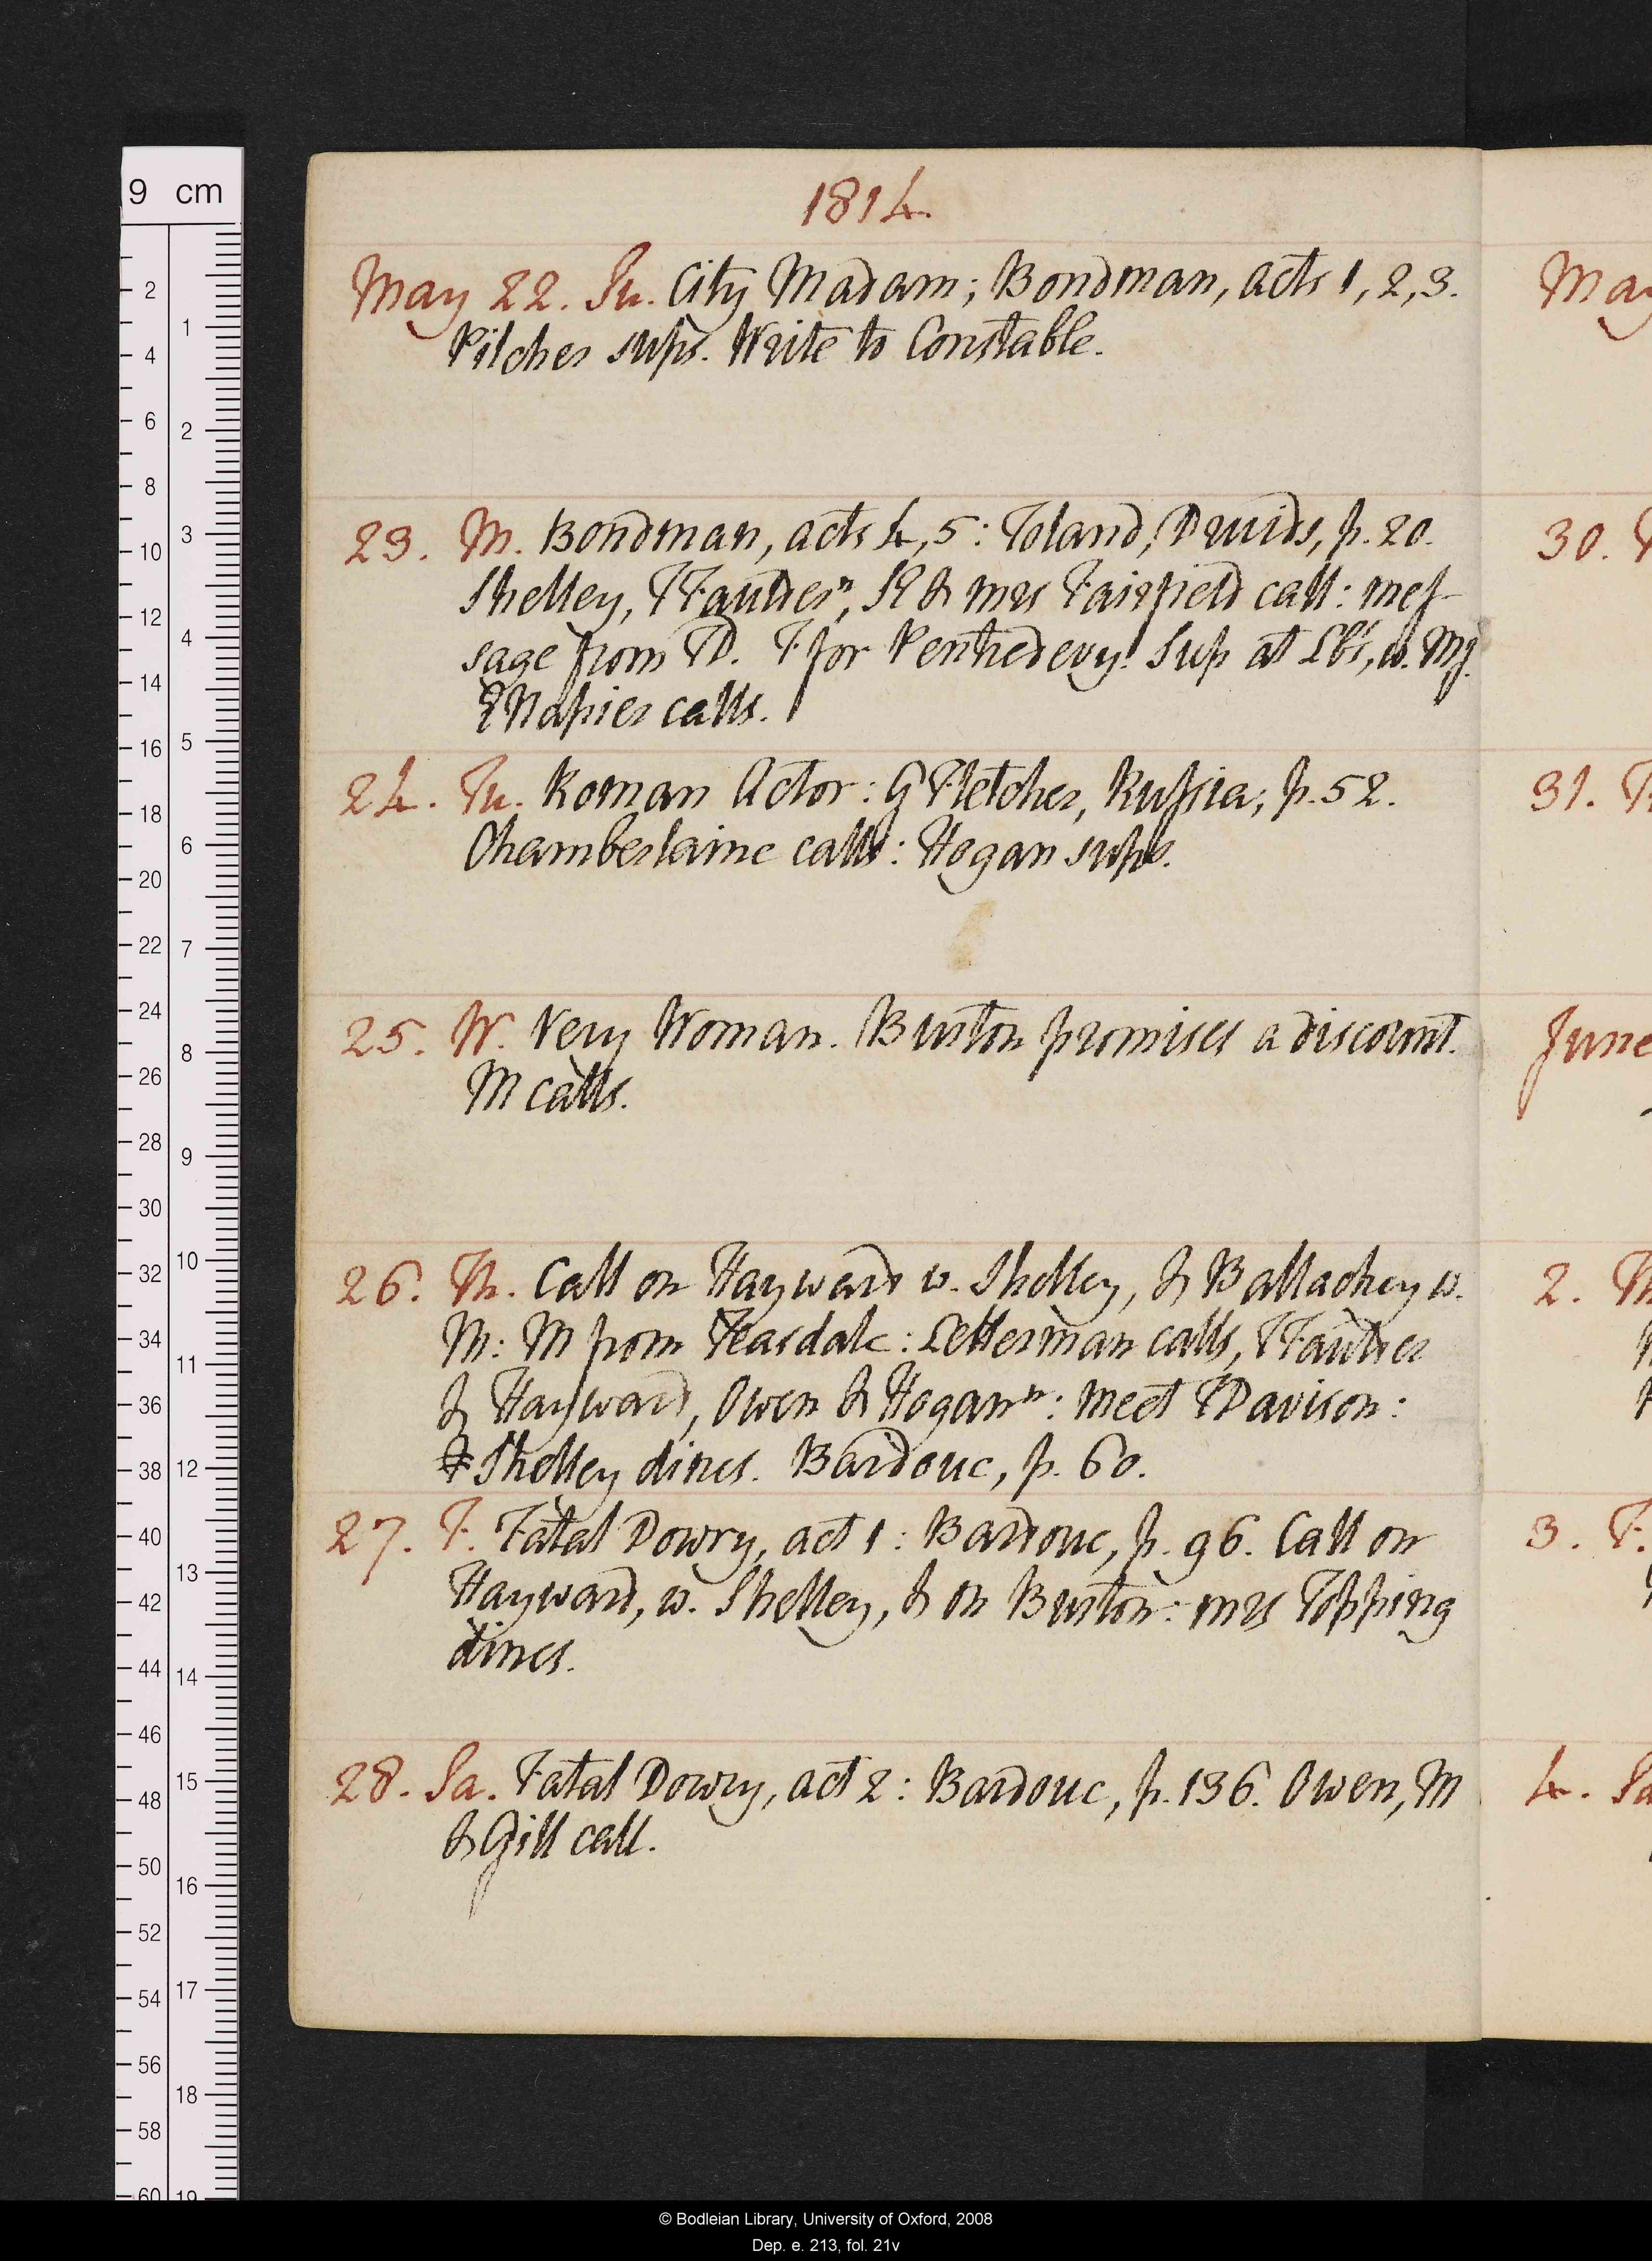 1814.
May 22. Su. City Madam; Bondman, acts 1, 2, 3.
Pilcher sups. Write to Constable.
23. M. Bondman, acts 4, 5: Toland, Druids, p. 20.
Shelley, TTautdern, & mrs Fairfield call: mes-
sage from TD. T for Penhedevy! Sup at LB's, w. MJ.
E Napier calls.
24. Tu. Roman Actor: G Fletcher, Russia, p. 52.
Chamberlaine calls: Hogan sups.
25. W. Very Woman. Burton promises a discount.
M calls.
26. Th. Call on Hayward w. Shelley, & Ballachey w.
M: M from Teasdale: Letterman calls,
& Hayward, Owen & Hogan n: meet TDavison:
Shelley dines. Bardouc, p. 60.
27. F. Fatal Dowry, act 1: Bardouc, p. 96. Call on
Hayward, w. Shelley, & on Burton: mrs Topping
dines.
28. Sa. Fatal Dowry, act 2: Bardouc, p. 136. Owen, M
& Gill call.
May
30.
31. T
June
2. Th
3. F.
4. Sa
9 cm
2
4
6
8
10
12
14
16
18
20
22
24
26
28
30
32
34
36
38
40
42
44
46
48
50
52
54
56
58
60
1
2
3
4
5
6
7
8
9
10
11
12
13
14
15
16
17
18
19
© Bodleian Library, University of Oxford, 2008
Dep. e. 213, fol. 21v